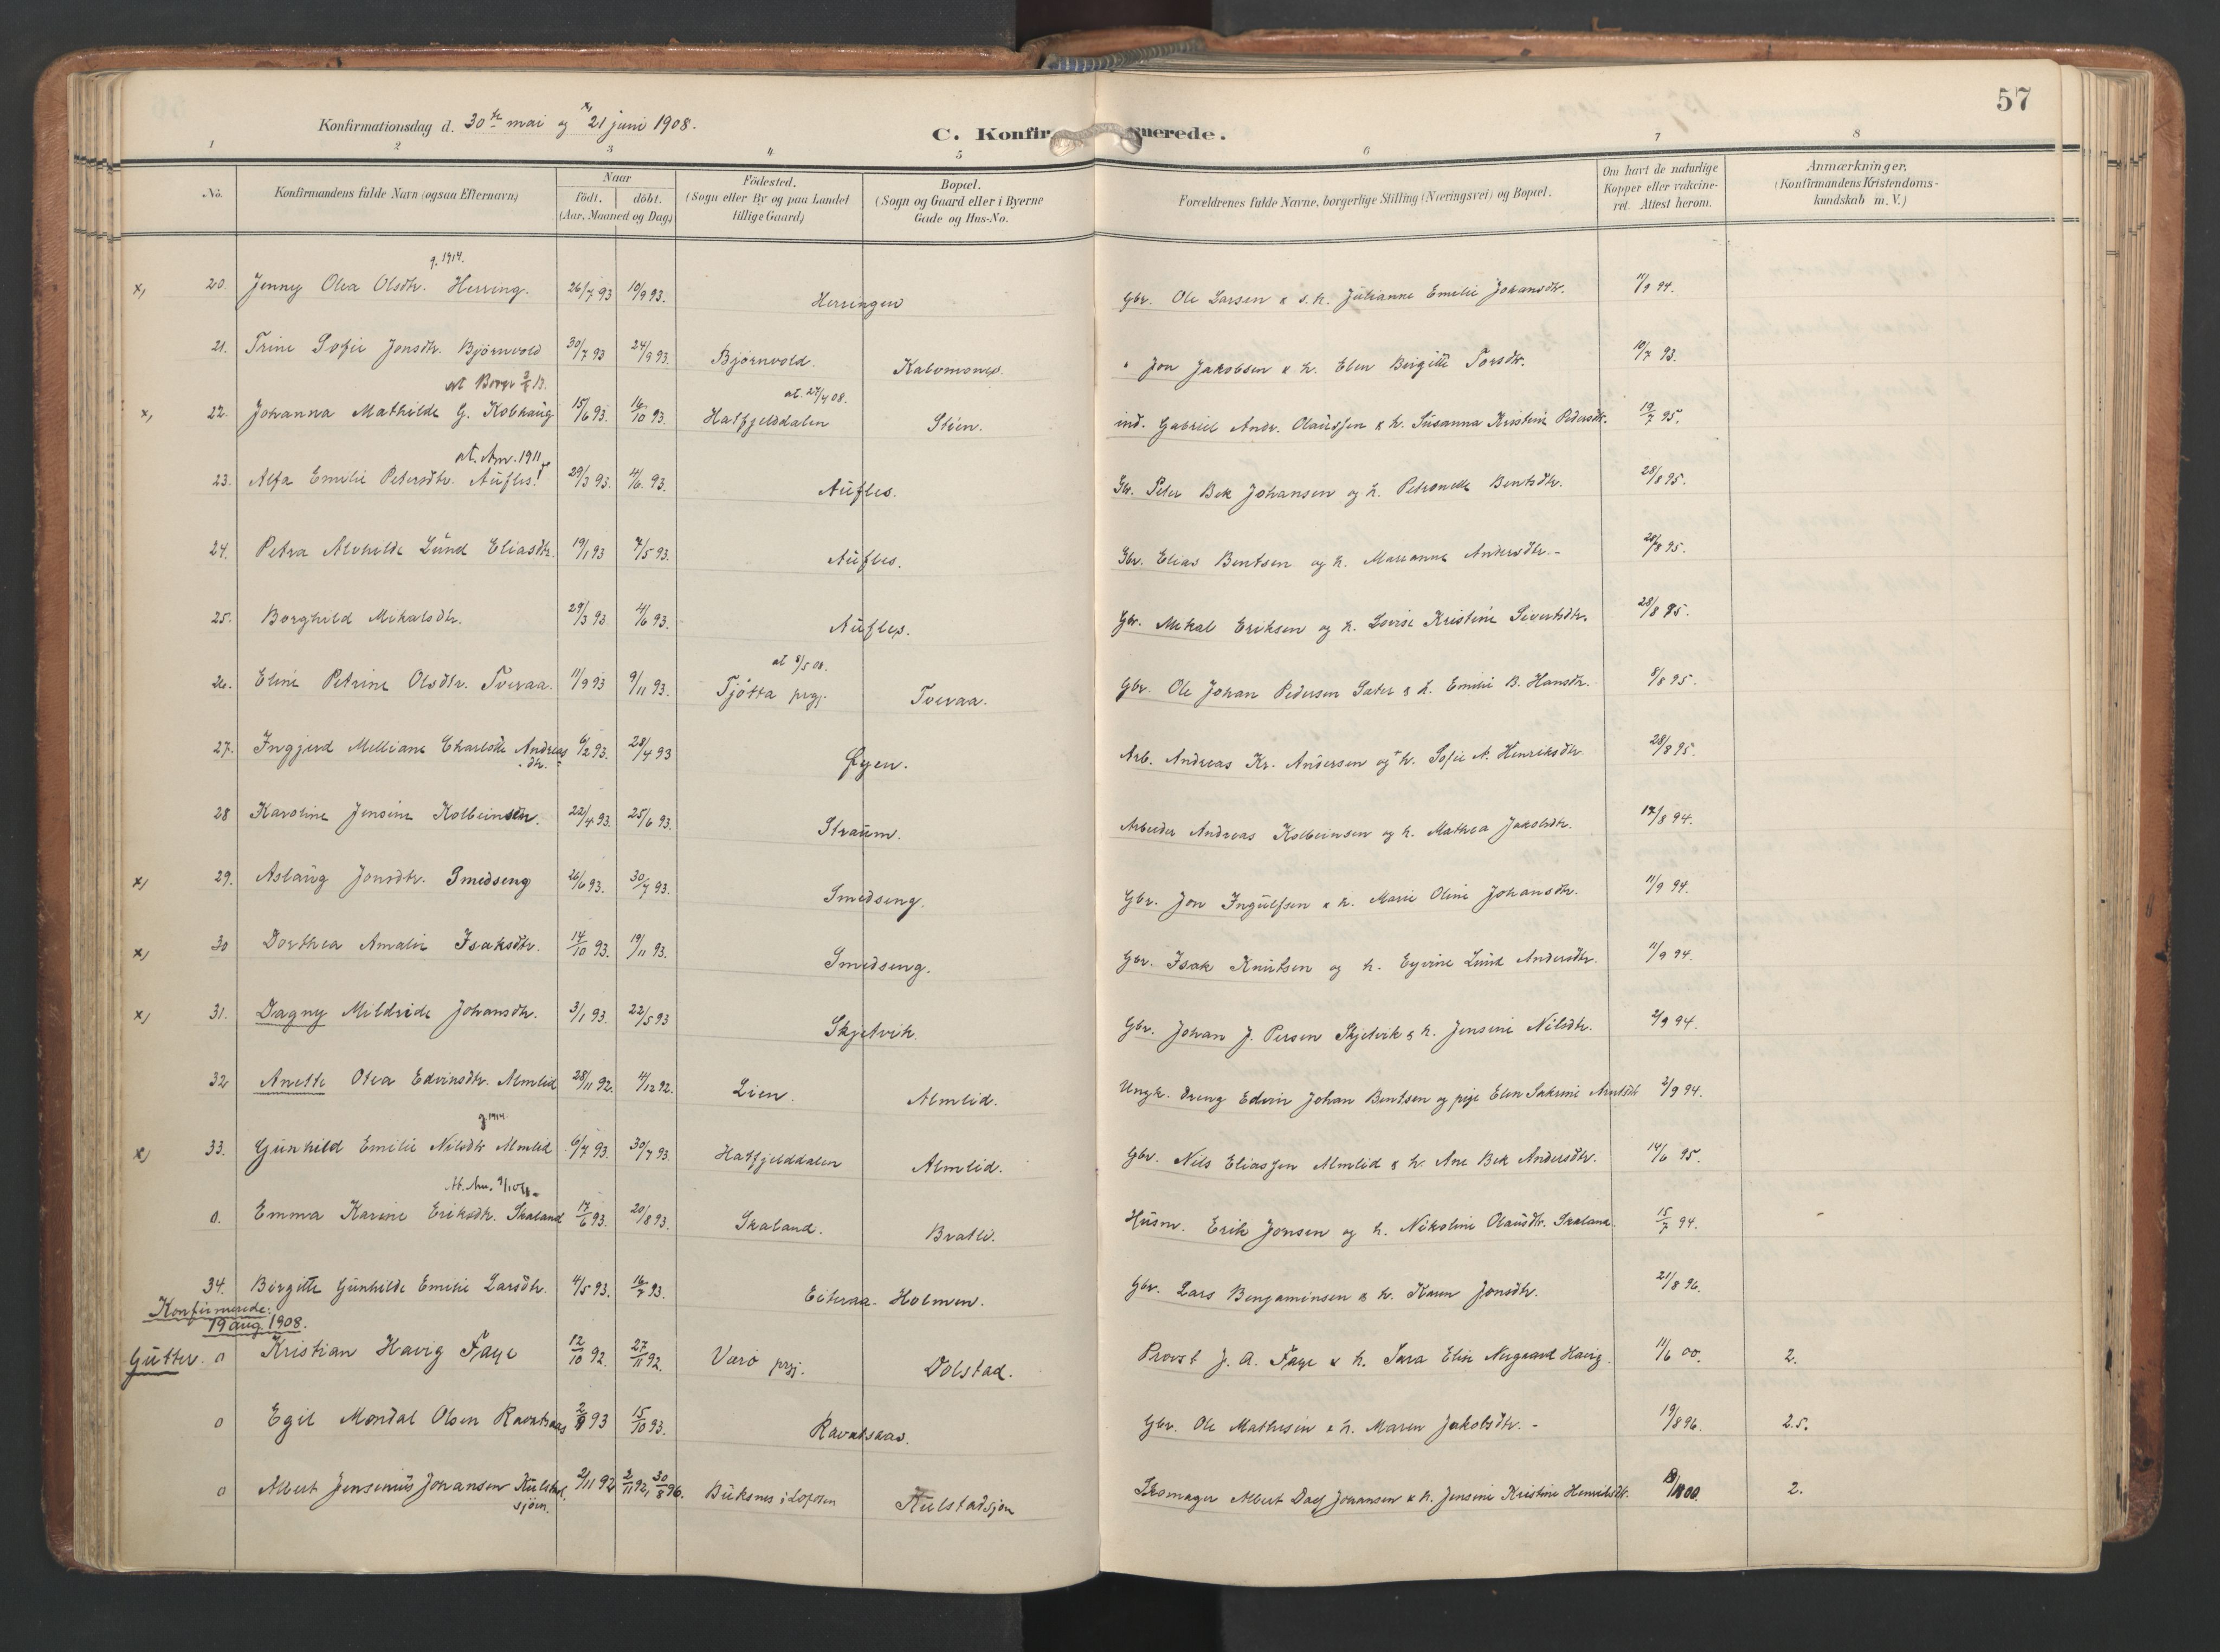 57
Konfirmationsdag d. 30te mai og x) 21 juni 1908.
C. Konfir merede.
1 2 3 4 5 6 7 8
No. Konfirmandens fulde Navn (ogsaa Efternavn) Naar födt. döbt. (Aar, Maaned og Dag) Födested. (Sogn eller By og paa Landet tillige Gaard) Bopæl. (Sogn og Gaard eller i Byerne Gade og Hus-No. Forældrenes fulde Navne, borgerlige Stilling (Næringsvei) og Bopæl. Om havt de naturlige Kopper eller vakcineret. Attest herom. Anmærkninger, (Konfirmandens Kristendomskundskab m. V.)
g. 1914.
x) 20. Jenny Olea Olsdtr. Herring. 26/7 93 10/9 93. Herringen Gbr. Ole Larsen & s. h. Julianne Emilie Johansdtr. 11/9 94.
21. Trine Sofie Jonsdtr. Björnvold 30/7 93 24/9 93. Björnvold. Kalvmones. " Jon Jakobsen & h. Elen Birgitte Torsdtr. 10/7 93.
at. 27/4 08.
x) 22. Johanna Mathilde G. Kobhaug 15/6 93. 16/10 93. Hatfjelddalen Stien. ind. Gabriel Andr. Olaussen & h. Susanna Kristine Pedersdtr. 19/7 95.
at. Am. 1911
23. Alfa Emilie Petersdtr. Aufles. 29/3 93. 4/6. 93. Aufles. Gbr. Peter Bek Johansen og h. Petronelle Bentsdtr. 28/8 95.
24. Petra Alvhilde Lund Eliasdtr. 19/1 93 7/5 93. Aufles. Gbr. Elias Bentsen og h. Marianna Andersdtr. - 28/8 95.
25. Borghild Mikalsdtr. 29/3 93 4/6 93. Aufles. Gbr. Mikal Eriksen og h. Lovise Kristine Sivertsdtr. 28/8 95.
at 8/5 08.
26. Eline Petrine Olsdtr. Tveraa. 11/9 93 9/11 93. Tjötta prgj. Tveraa. Gbr. Ole Johan Pedersen Sæter & h. Emilie B. Hansdtr. 8/8 95.
27. Ingjerd Milliane Charlotte Andreasdtr. 6/2 93. 23/4 93 Øyen. Arb. Andreas Kr. Andersen og h. Sofie A. Henriksdtr. 28/8 95.
28 Karoline Jensine Kolbeinsdtr. 22/4 93. 25/6 93. Straum. Arbeider Andreas Kolbeinsen og h. Mathea Jakobsdtr. 17/8 94.
x) 29. Aslaug Jonsdtr. Smedseng 26/6 93. 30/7 93. Smedseng. Gbr. Jon Ingulfsen & h. Marie Oline Johansdtr. 11/9 94.
x) 30 Dorthea Amalie Isaksdtr. 14/10 93. 19/11 93. Smedseng. Gbr. Isak Knutsen og h. Eyvine Lund Andersdtr. 11/9 94.
x) 31. Dagny Mildride Johansdtr. 3/1 93. 22/5 93 Skjetvik. Gbr. Johan J. Persen Skjetvik & h. Jensine Nilsdtr. 2/9 94.
32 Anette Olea Edvinsdtr. Almlid 28/11 92. 4/12 92. Lien. Almlid. Ungk. dreng Edvin Johan Bentsen og pige Elen Sakrine Arntsdtr 2/9 94.
g 1914.
x) 33. Gunhild Emilie Nilsdtr Almlid 6/7 93. 30/7 93. Hatfjelddalen Almlid. Gbr. Nils Eliassen Almlid & h. Ane Bek Andersdtr. 14/6 95.
0. Emma Karine Eriksdtr. Skaland 17/6 93. 20/8 93. Skaland. Bratli. Husm. Erik Jonsen og h. Nikoline Olausdtr. Skaland. 15/7 94.
34. Birgitte Gunhilde Emilie Larsdtr. 4/5 93. 16/7 93. Eiteraa - Holmen. Gbr. Lars Benjaminsen & h. Karen Jonsdtr. 21/8 96.
Konfirmerede:
19 aug. 1908.
Gutter. 0 Kristian Havig Faye 12/10 92. 27/11 92. Værö prgj. Dolstad. Provst J. A. Faye & h. Sara Elise Nygaard Havig. 11/6 00. 2.
0 Egil Mondal Olsen Ravatsaas 2/9 93 15/10 93. Ravatsaas. Gbr. Ole Mathisen & h. Maren Jakobsdtr. - 19/8 96. 2.5.
0 Albert Jensenius Johansen Kulstadsjöen. 2/11 92 2/11 92, 30/8 96. Buksnes i Lofoten Kulstadsjøen Skomager Albert Dass Johansen & h. Jensine Kristine Henriksdtr. 2.